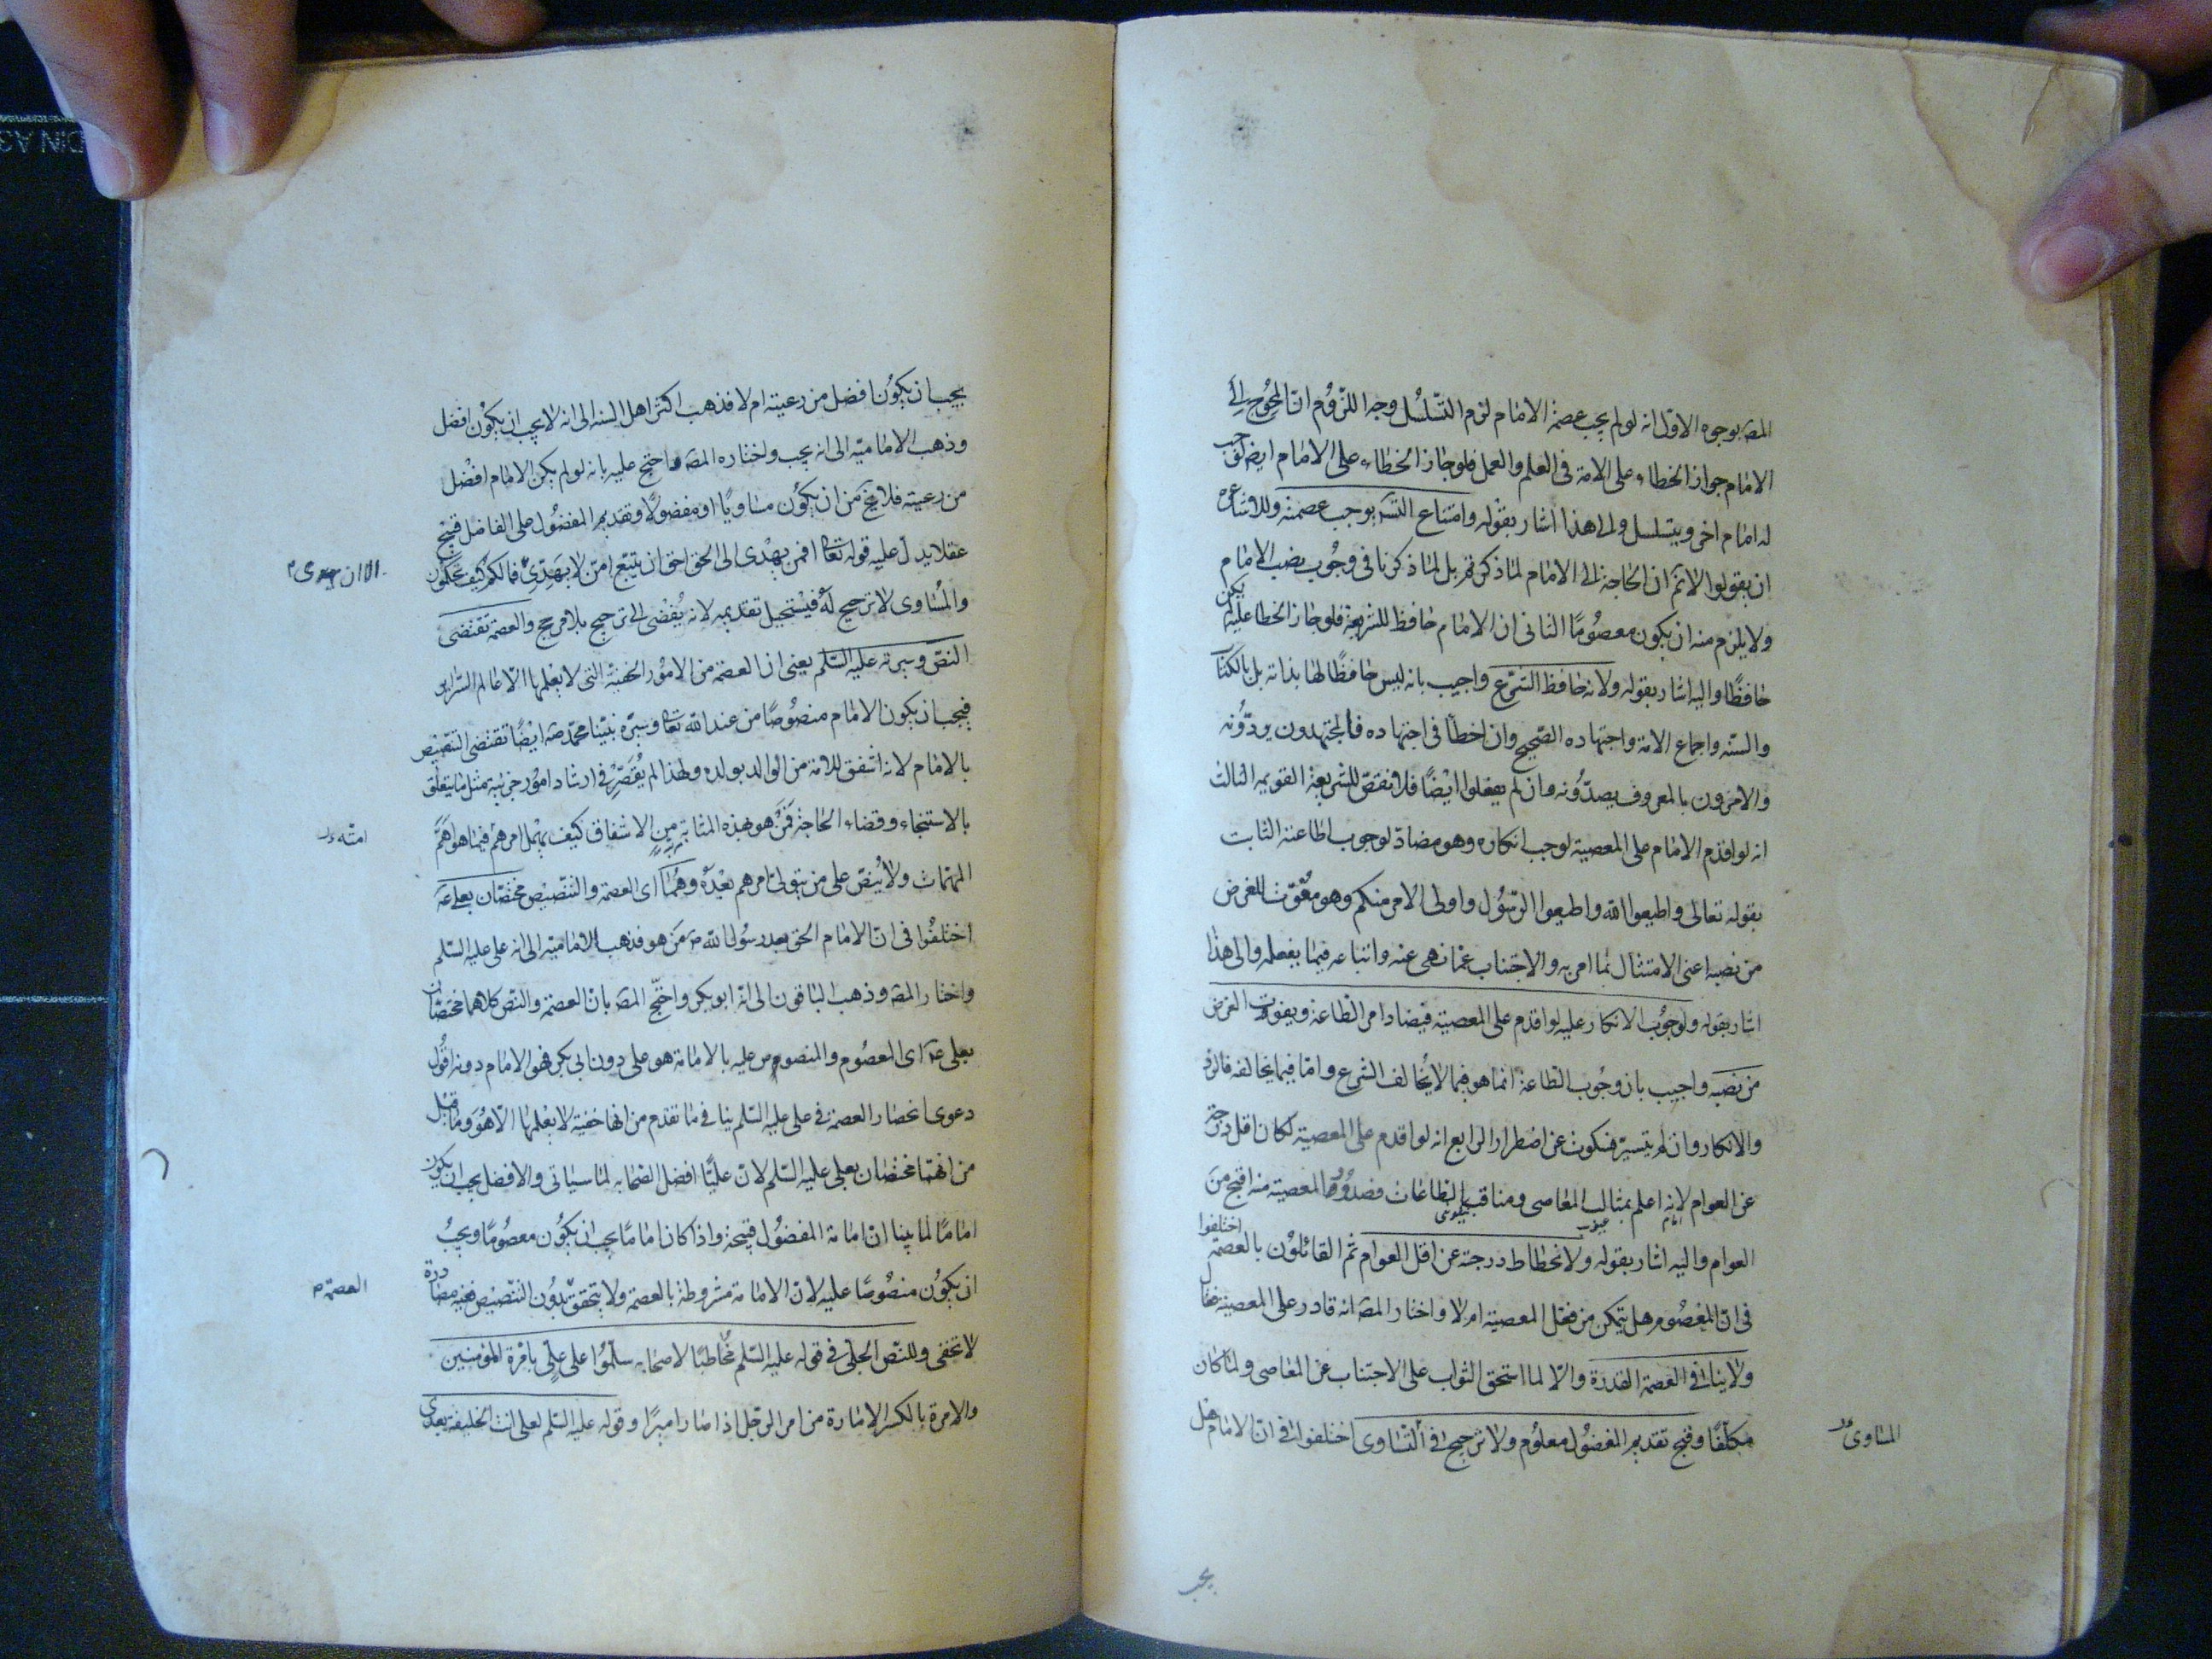 المصه بوجوه الاول انه لو لم يجب عصمة الامام لزم التسلسل وجه اللزوم ان المحوج الى
الامام جواز الخطاء على الامة فى العلم والعمل فلو جاز الخطاء على الامام ايضه لوجب
له امام اخر ويتسلسل والى هذا اشار بقوله وامتناع التسه يوجب عصمته وللاشاعرة
ان يقولوا لانم ان الحاجة الى الامام لما ذكرتم بل لما ذكرنا فى وجوب نصب الامام
ولا يلزم منه ان يكون معصومًا الثانى ان الامام حافظ للشريعة فلو جاز الخطا عليه لم يكن
حافظًا واليه اشار بقوله ولانه حافظ الشرع واجيب بانه ليس حافظًا لها بذاته بل بالكتاب
والسنه واجماع الامة واجتهاده الصحيح وان اخطأ فى اجتهاده فالمجتهدون يردّونه
والامرون بالمعروف يصدّونه وان لم يفعلوا ايضًا فلا نقض للشريعة القويمه الثالث
انه لو اقدم الامام على المعصية لوجب انكاره وهو مضادّ لوجوب اطاعته الثابت
بقوله تعالى واطيعوا الله واطيعوا الرسول واولى الامر منكم وهو مفوّت للغرض
من نصبه اعنى الامتثال لما امر به والاجتناب عما نهى عنه واتباعه فيما يفعله والى هذا
اشار بقوله ولوجوب الانكار عليه لو اقدم على المعصية فيضاد امر الطاعة ويفوت الغرض
من نصبه واجيب بان وجوب الطاعة انما هو فيما لا يخالف الشرع واما فيما يخالفه فالرد
والانكار وان لم يتيسر فسكوت عن اضطرار الرابع انه لو اقدم على المعصية لكان اقل درجة
عن العوام لانه اعلم بمثالب المعاصى ومناقب الطاعات فصدور المعصية منه اقبح من
العوام واليه اشار بقوله ولانحطاط درجته عن اقل العوام ثم القائلون بالعصمة اختلفوا
فى ان المعصوم هل يتمكن من فعل المعصية ام لا واختار المصه انه قادر على المعصية فقال
ولا ينافى العصمة القدرة والّا لما استحق الثواب على الاجتناب عن المعاصى ولما كان
مكلّفًا وقبح تقديم المفضول معلوم ولا ترجيح فى التساوى اختلفوا فى ان الامام هل
المساوى
يجب
يجب ان يكون افضل من رعيته ام لا فذهب اكثر اهل السنه الى انه لا يجب ان يكون افضل
وذهب الامامية الى انه يجب واختاره المصه واحتج عليه بانه لو لم يكن الامام افضل
من رعيته فلا يخ من ان يكون مساويًا او مفضولًا وتقديم المفضول على الفاضل قبيح
عقلا يدل عليه قوله تعا افمن يهدى الى الحق احق ان يتبع امن لا يهدّى فما لكم كيف تحكمون
الا ان يهدى
والمساوى لا ترجيح له فيستحيل تقديمه لانه يفضى الى ترجيح بلا مرجح والعصمة تقتضى
النص وسيرته عليه السلم يعنى ان العصمة من الامور الخفية التى لا يعلمها الا عالم السراير
فيجب ان يكون الامام منصوصًا من عند الله تعا وسيرة نبينا محمد صه ايضًا تقتضى التنصيص
بالامام لانه اشفق للامة من الوالد بولده ولهذا لم يقصّر فى ارشاد امور جزئية مثل ما يتعلق
بالاستنجاء وقضاء الحاجة فمن هو بهذه المثابة من الاشفاق كيف يهمل امرهم فيما هو اهم
امته
المهمّات ولا ينصّ على من يتولى امرهم بعده وهما اى العصمة والتنصيص مختصّان بعلى عه
اختلفوا فى ان الامام الحق بعد رسول الله ص من هو فذهب الامامية الى انه على عليه السلم
واختار المصه وذهب الباقون الى انه ابو بكر واحتج المصه بان العصمة والنص كلاهما مختصّان
بعلى عه اى المعصوم والمنصوص عليه بالامامة هو على دون ابى بكر فهو الامام دونه اقول
دعوى انحصار العصمة فى على عليه السلم ينافى ما تقدم من انها خفية لا يعلمها الا هو وما قيل
من انهما مختصّان بعلى عليه السلم لان عليًّا افضل الصحابه لما سياتى والافضل يجب ان يكون
امامًا لما بينا ان امامة المفضول قبيحة واذا كان امامًا يجب ان يكون معصومًا ويجب
ان يكون منصوصًا عليه لان الامامة مشروطة بالعصمة ولا يتحقق بدون التنصيص ففيه مصادرة
العصمة
لا تخفى وللنص الجلى فى قوله عليه السلم مخاطبًا لاصحابه سلّموا على علىٍ بامرة المؤمنين
والامرة بالكسر الامارة من امر الرجل اذا صار اميرًا وقوله عليه السلم لعلى انت الخليفة بعدى